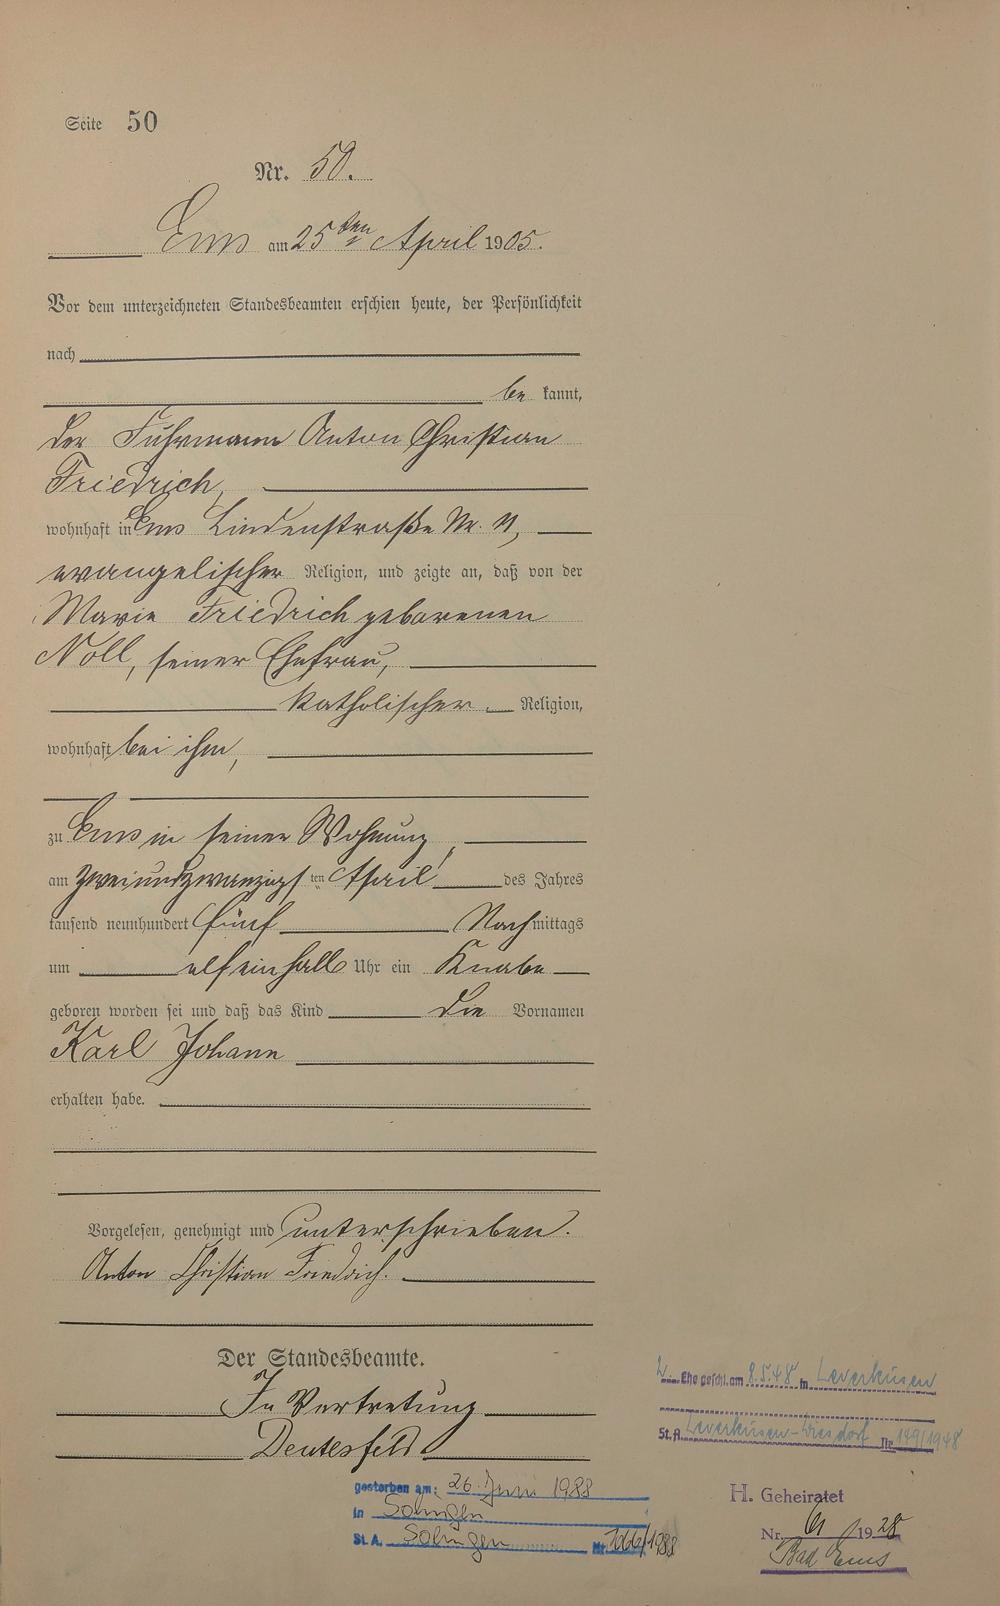 Seite 50
Nr. 50.
Ems am 25ten April 1905.
Vor dem unterzeichneten Standesbeamten erschien heute, der Persönlichkeit
nach
be kannt,
der Fuhrmann Anton Christian
Friedrich,
wohnhaft in Ems Lindenstraße Nr. 11,
evangelischer Religion, und zeigte an, daß von der
Marie Friedrich geborenen
Noll, seiner Ehefrau,
katholischer Religion,
wohnhaft bei ihm,
zu Ems in seiner Wohnung,
am zweiundzwanzigsten April des Jahres
tausend neunhundert fünf Nachmittags
um elf einhalb Uhr ein Knabe
geboren worden sei und daß das Kind die Vornamen
Karl Johann
erhalten habe.
Vorgelesen, genehmigt und unterschrieben.
Anton Christian Friedrich.
Der Standesbeamte.
In Vertretung
Deutesfeld
2. Ehe geschl. am 8.5.48 in Leverkusen
St.A. Leverkusen-Wiesdorf Nr. 149/1948
gestorben am: 26. Juni 1988
in Solingen
St. A. Solingen Nr. 1066/1988
H. Geheiratet
Nr. 61 /1928
Bad Ems